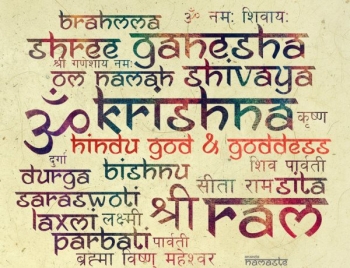 brahmma ॐ नमः शिवायः
shree ganesha
श्री गणेशाय नमः
om namah shivaya
ॐ krishna कृष्ण
hindu god & goddess
दुर्गा bishnu शिव पार्वती
durga सीता राम sita
saraswoti श्री ram
laxmi लक्ष्मी
parbati पार्वती
ब्रह्मा विष्णु महेश्वर
namaste